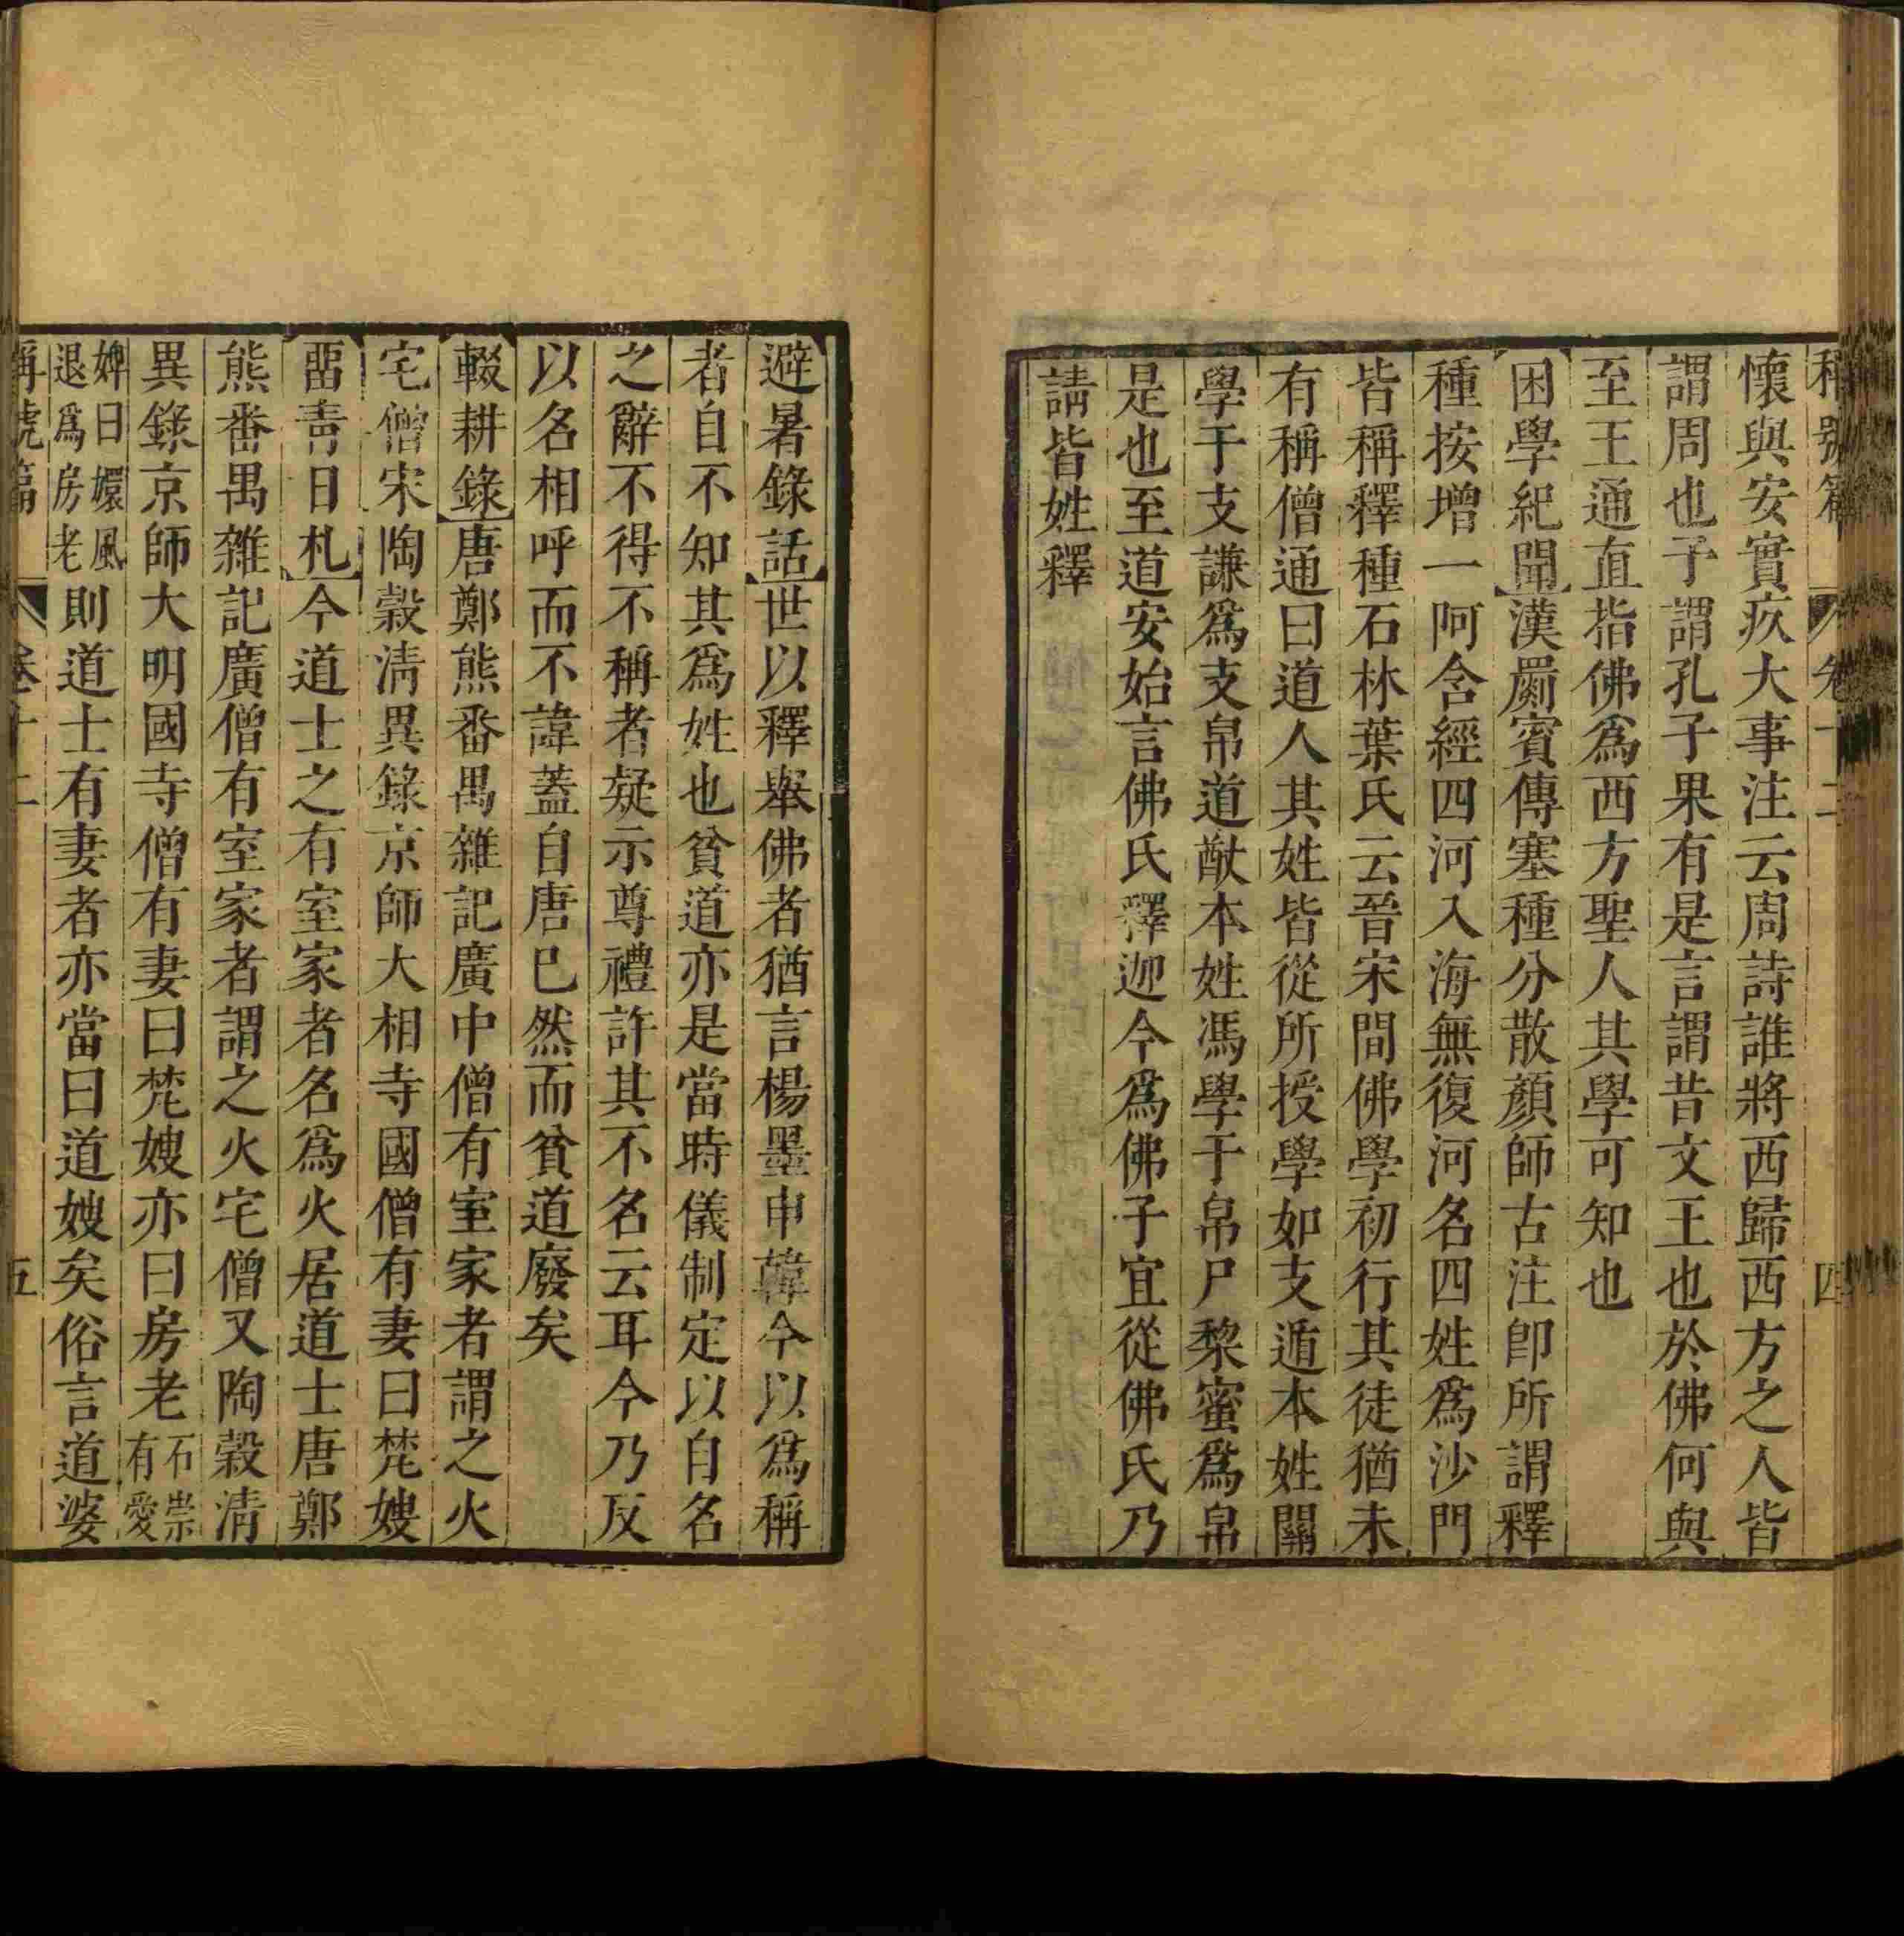 稱號篇 卷十二 四
懷與安實疚大事注云周詩誰將西歸西方之人皆
謂周也子謂孔子果有是言謂昔文王也於佛何與
至王通直指佛爲西方聖人其學可知也
困學紀聞漢罽賓傳塞種分散顏師古注卽所謂釋
種按增一阿含經四河入海無復河名四姓爲沙門
皆稱釋種石林葉氏云晉宋間佛學初行其徒猶未
有稱僧通曰道人其姓皆從所授學如支遁本姓關
學于支謙爲支帛道猷本姓馮學于帛尸黎蜜爲帛
是也至道安始言佛氏釋迦今爲佛子宜從佛氏乃
請皆姓釋
避暑錄話世以釋舉佛者猶言楊墨申韓今以爲稱
者自不知其爲姓也貧道亦是當時儀制定以自名
之辭不得不稱者疑示尊禮許其不名云耳今乃反
以名相呼而不諱蓋自唐已然而貧道廢矣
輟耕錄唐鄭熊番禺雜記廣中僧有室家者謂之火
宅僧宋陶穀清異錄京師大相寺國僧有妻曰梵嫂
畱靑日札今道士之有室家者名爲火居道士唐鄭
熊番禺雜記廣僧有室家者謂之火宅僧又陶穀清
異錄京師大明國寺僧有妻曰梵嫂亦曰房老石崇有愛
婢曰嬛風退爲房老則道士有妻者亦當曰道嫂矣俗言道婆
稱號篇 卷十二 五